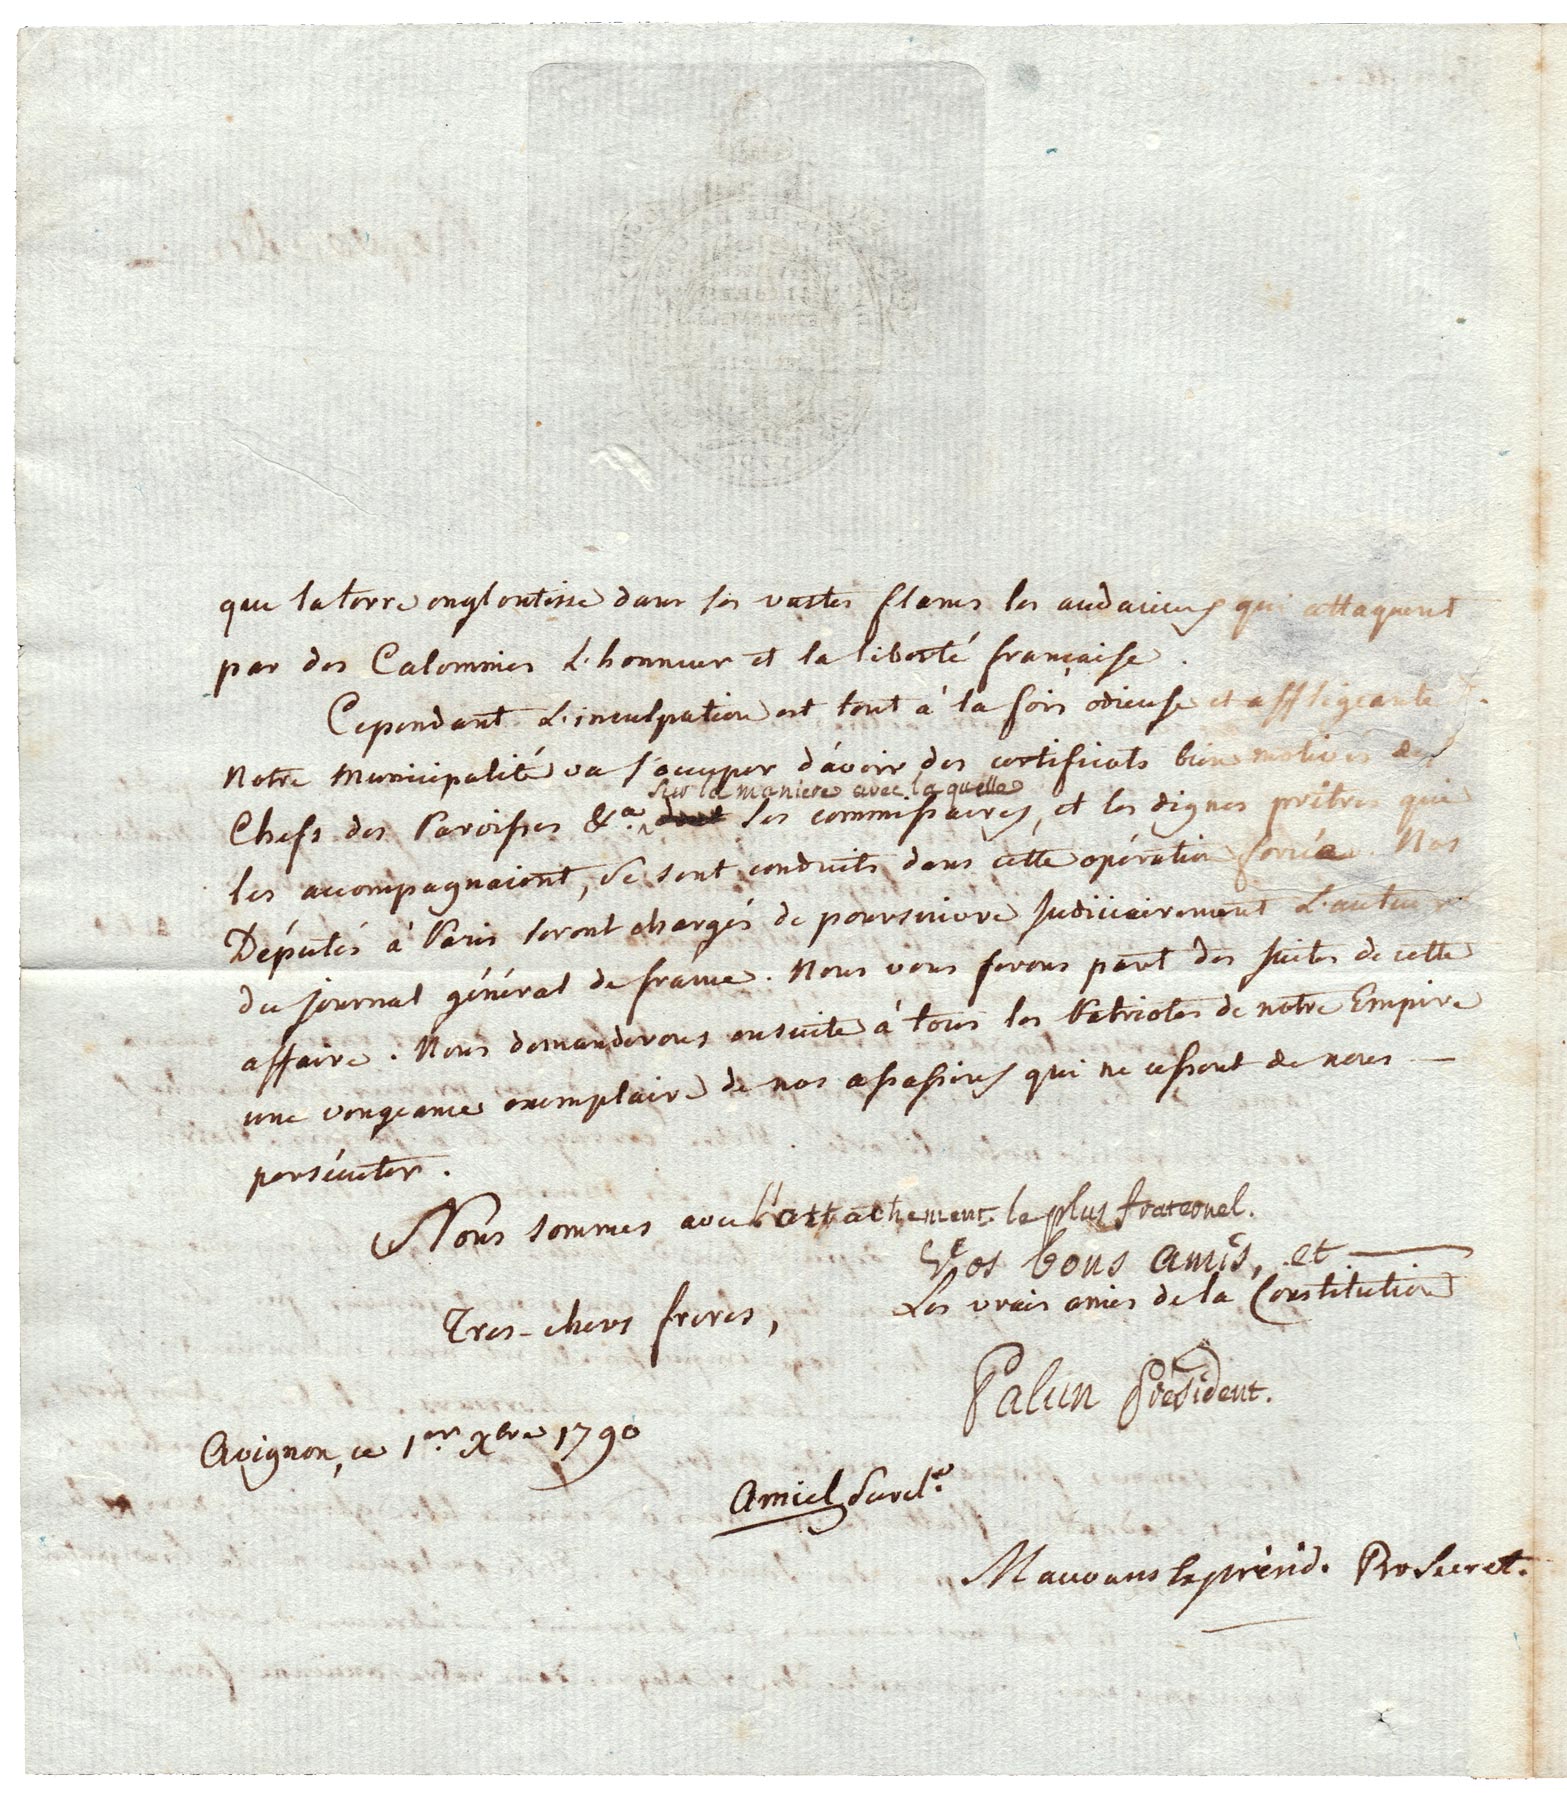 que la terre engloutisse dans ses vastes flancs les audacieux qui attaquent
par des Calomnies L'honneur et la liberté française.
Cependant L'inculpation est tout à la fois odieuse et affligeante.
Notre Municipalité va s'occuper d'avoir des certificats bien motivés des
sur la maniere avec laquelle
Chefs des Paroisses &a. les commissaires, et les dignes prêtres qui
les accompagnaient, se sont conduits dans cette opération forcée. Nos
Députés à Paris seront chargés de poursuivre judiciairement L'auteur
du journal général de france. Nous vous ferons part des suites de cette
affaire. Nous demanderons ensuite à tous les Patriotes de notre Empire
une vengeance exemplaire de nos assassins qui ne cessent de nous —
persécuter.
Nous sommes avec l'attachement le plus fraternel.
Vos bons amis, et —
Les vrais amis de la Constitution
Tres-chers freres,
Palun Président.
Avignon, ce 1er. Xbre 1790
Amiel
Pro Secret.